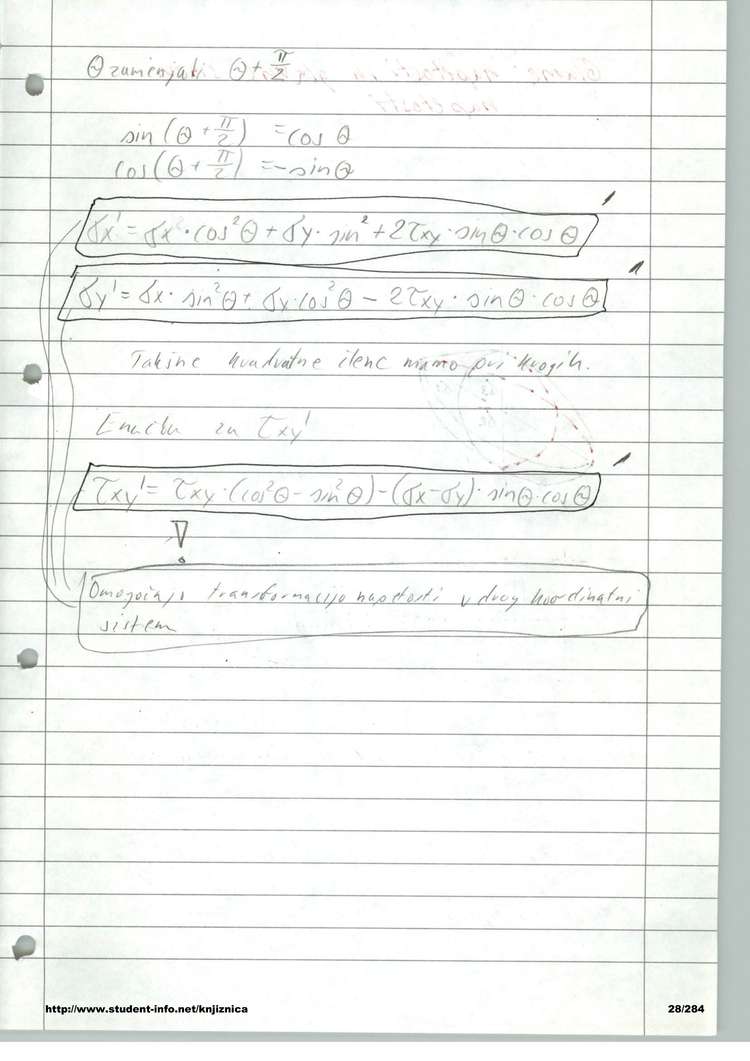 Θ zamenjati Θ + π/2
sin (Θ + π/2) = cos Θ
cos (Θ + π/2) = -sin Θ
σx' = σx · cos²Θ + σy · sin² + 2τxy · sinΘ · cosΘ
σy' = σx · sin²Θ + σy · cos²Θ - 2τxy · sinΘ · cosΘ
Takšne kvadratne člene mamo pri krogih.
Enačba za τxy'
τxy' = τxy · (cos²Θ - sin²Θ) - (σx - σy) · sinΘ · cosΘ
Omogočajo transformacijo napetosti v drug koordinatni
sistem
http://www.student-info.net/knjiznica
28/284